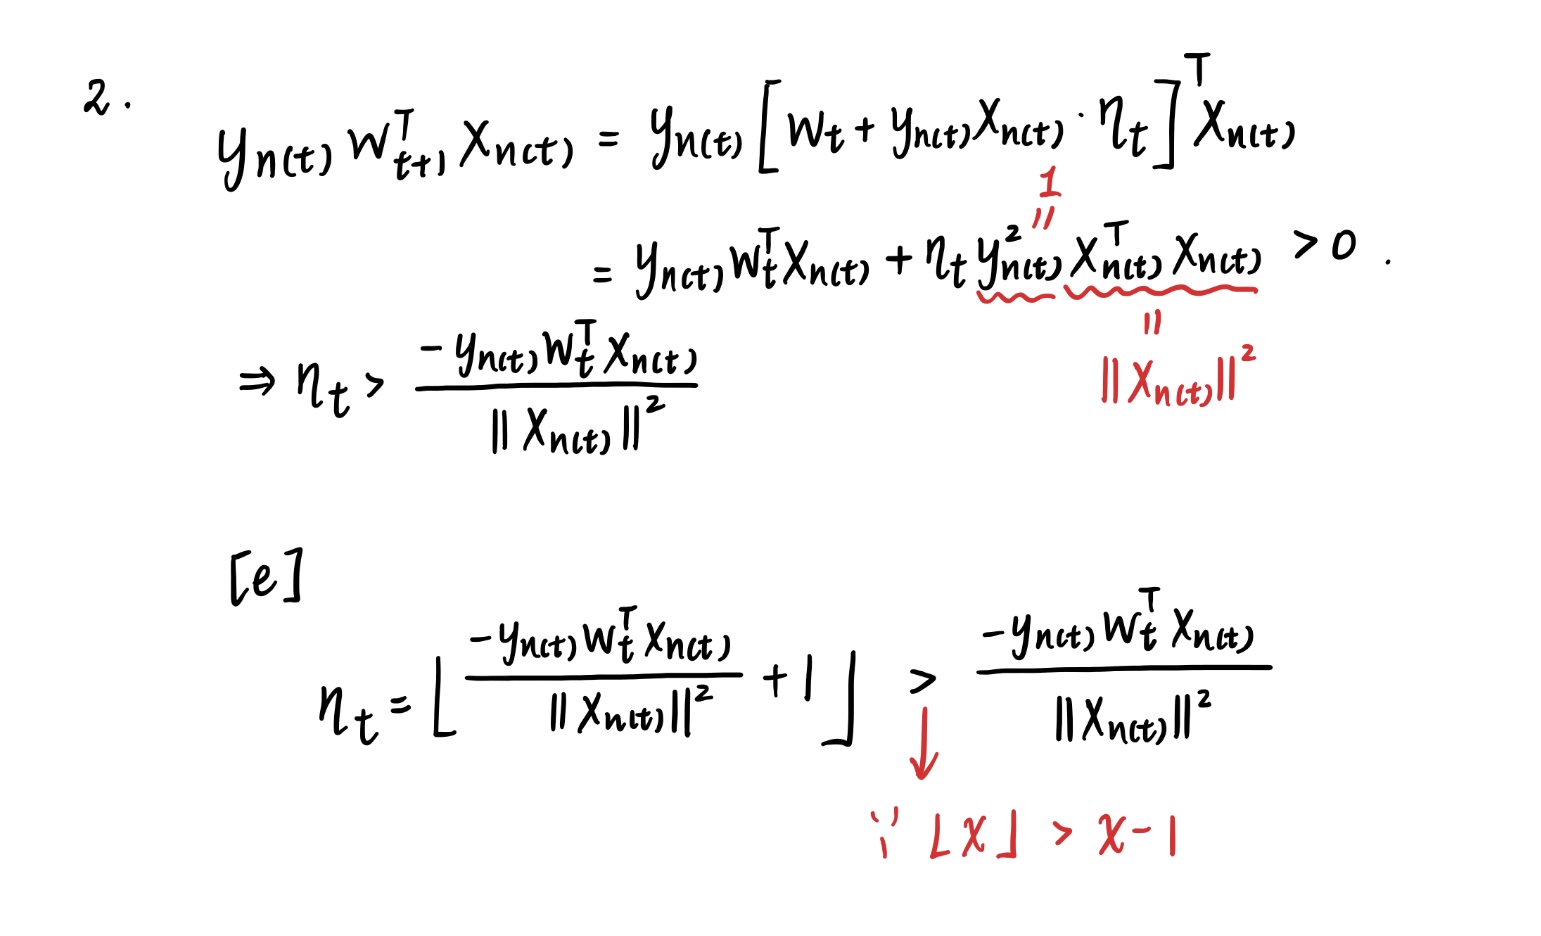 2. y_{n(t)} w_{t+1}^T x_{n(t)} = y_{n(t)} [ w_t + y_{n(t)} x_{n(t)} · η_t ]^T x_{n(t)}
1
=
= y_{n(t)} w_t^T x_{n(t)} + η_t y_{n(t)}^2 x_{n(t)}^T x_{n(t)} > 0 .
=
‖x_{n(t)}‖^2
⇒ η_t > \frac{-y_{n(t)} w_t^T x_{n(t)}}{‖x_{n(t)}‖^2}
[e]
η_t = ⌊ \frac{-y_{n(t)} w_t^T x_{n(t)}}{‖x_{n(t)}‖^2} + 1 ⌋ > \frac{-y_{n(t)} w_t^T x_{n(t)}}{‖x_{n(t)}‖^2}
↓
∵ ⌊x⌋ > x - 1